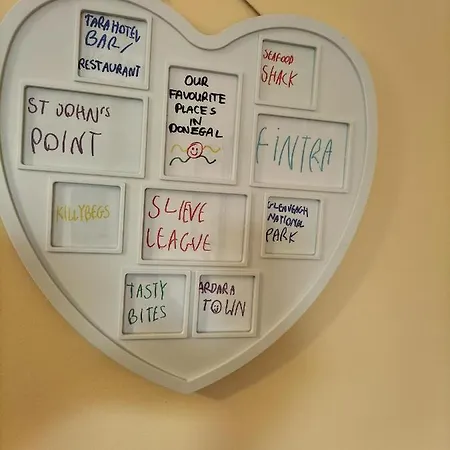 TARA HOTEL
BAR/
RESTAURANT
SEAFOOD
SHACK
OUR
FAVOURITE
PLACES
IN
DONEGAL
ST JOHN'S
POINT
FINTRA
KILLYBEGS
SLIEVE
LEAGUE
GLENVEAGH
NATIONAL
PARK
TASTY
BITES
ARDARA
TOWN